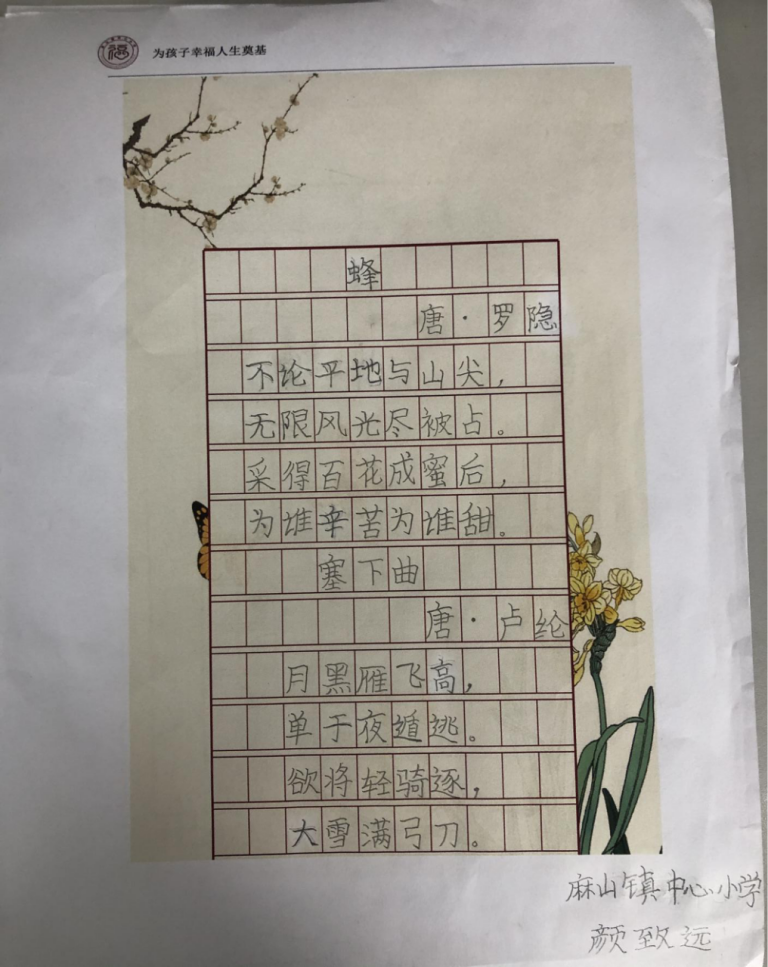 为孩子幸福人生奠基
蜂
唐·罗隐
不论平地与山尖，
无限风光尽被占。
采得百花成蜜后，
为谁辛苦为谁甜。
塞下曲
唐·卢纶
月黑雁飞高，
单于夜遁逃。
欲将轻骑逐，
大雪满弓刀。
麻山镇中心小学
颜致远